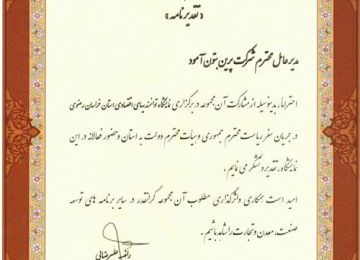 «تقدیرنامه»
مدیرعامل محترم شرکت پرین بتون آمود
احتراماً، بدینوسیله از مشارکت آن مجموعه در برگزاری نمایشگاه توانمندیهای اقتصادی استان خراسان رضوی
در جریان سفر ریاست محترم جمهوری و هیات محترم دولت به استان و حضور فعالانه در این
نمایشگاه، تقدیر و تشکر می نمایم.
امید است همکاری و اثرگذاری مطلوب آن مجموعه گرانقدر در سایر برنامه های توسعه
صنعت، معدن و تجارت را شاهد باشیم.